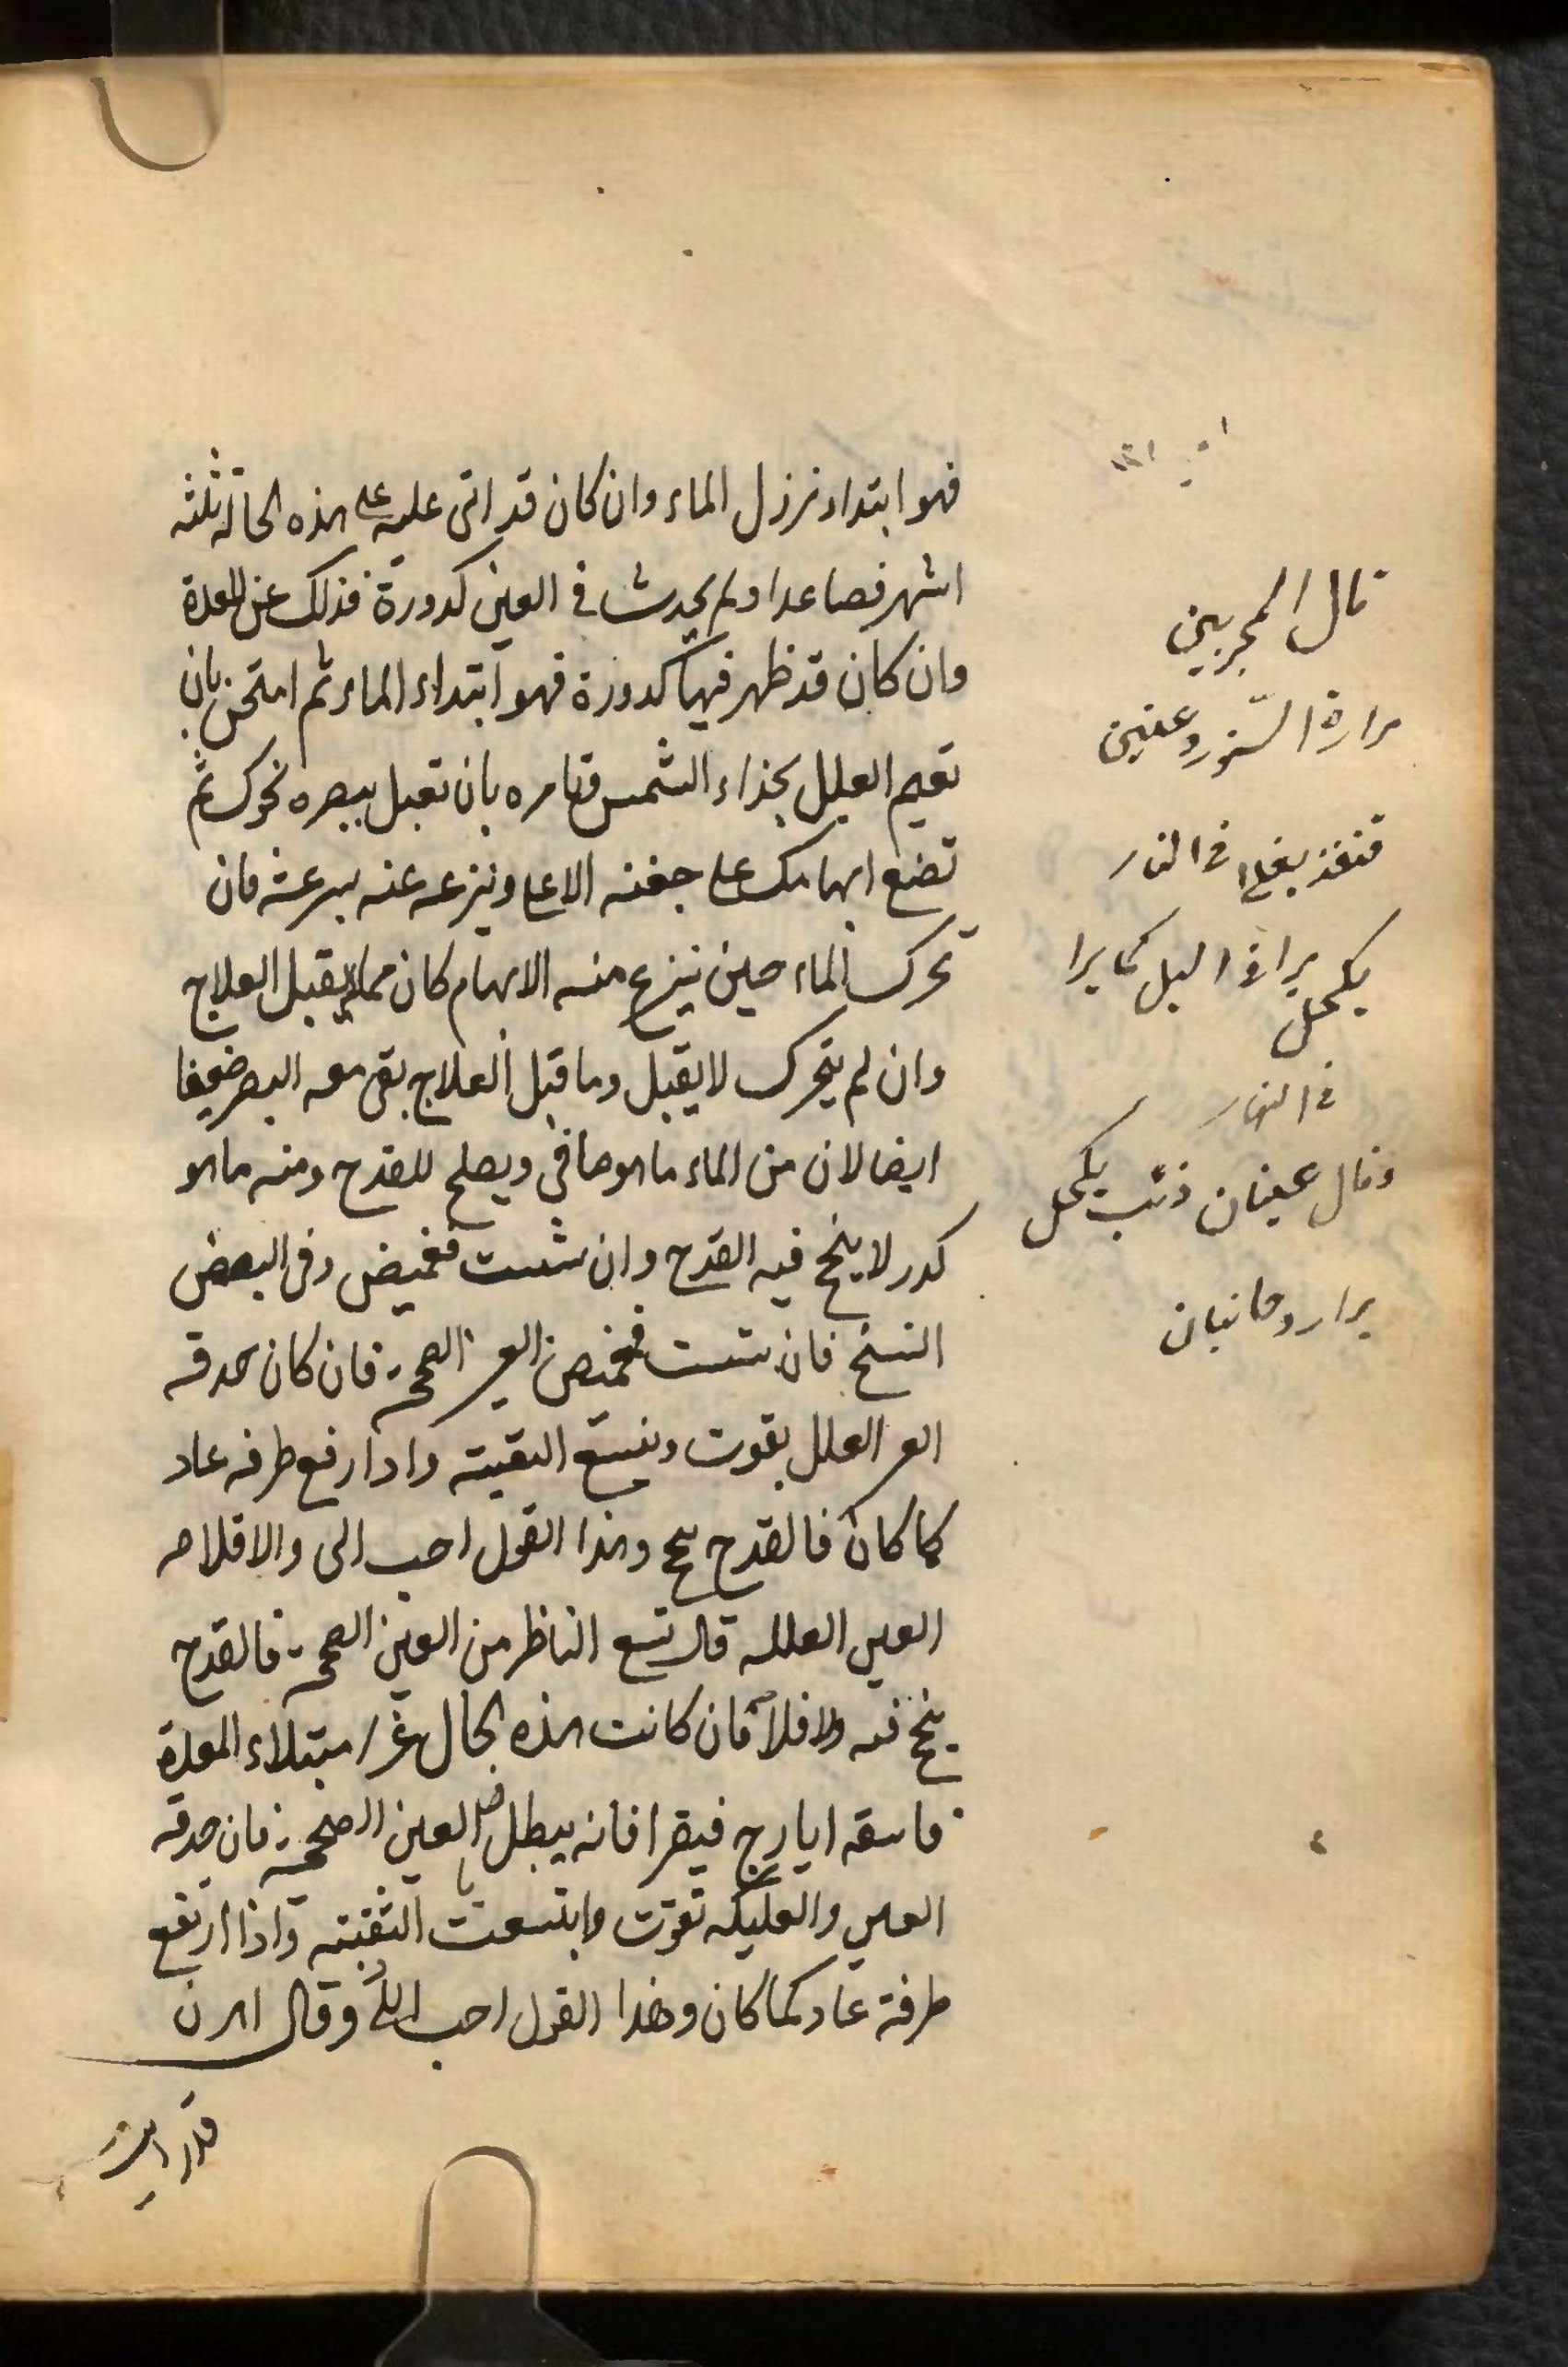 فهو ابتداء نزول الماء وان كان قد اتى عليه على هذه الحالة ثلثة
اشهر فصاعدا ولم يحدث في العين كدورة فذلك عن المعدة
وان كان قد ظهر فيها كدورة فهو ابتداء الماء ثم امتحن بان
تقيم العليل بحذاء الشمس فتامره بان تقبل ببصره نحوك ثم
تضع ابهامك على جفنه الاعلى وينزعه عنه بسرعة فان
تحرك الماء حين ينزع منه الابهام كان مما لا يقبل العلاج
وان لم يتحرك لا يقبل وما قبل العلاج بقى معه البصر ضعيفا
ايضا لان من الماء ما هو صافى ويصلح للقدح ومنه ما هو
كدر لا ينجح فيه القدح وان شئت فغميض وفى البعض
النسخ فان شئت فغميض العين الصحيحة فان كان حدقه
العين العليل بقوت وينسع الثقبته واذا رفع طرفه عاد
كما كان فالقدح ينجح وهذا القول احب الى والا فلا صه
العين العليله قال تتسع الناظر من العين الصحيحة فالقدح
ينجح فيه والا فلا فان كانت هذه الحال عن امتلاء المعدة
فاسقه ايارج فيقرا فانه يبطل العين الصحيحة فان حدقه
العين والعليله تقوت وابتسعت الثقبته واذا ارتفع
طرفة عاد كما كان وهذا القول احب الى وقال اهرن
قال المجربين
مرارة السنور وعنين
قنفذ يغلى فى النار
يكحل يرا فى اليل كما يرا
فى النهار
وقال عينان ذئب يكحل
يرا روحانيان